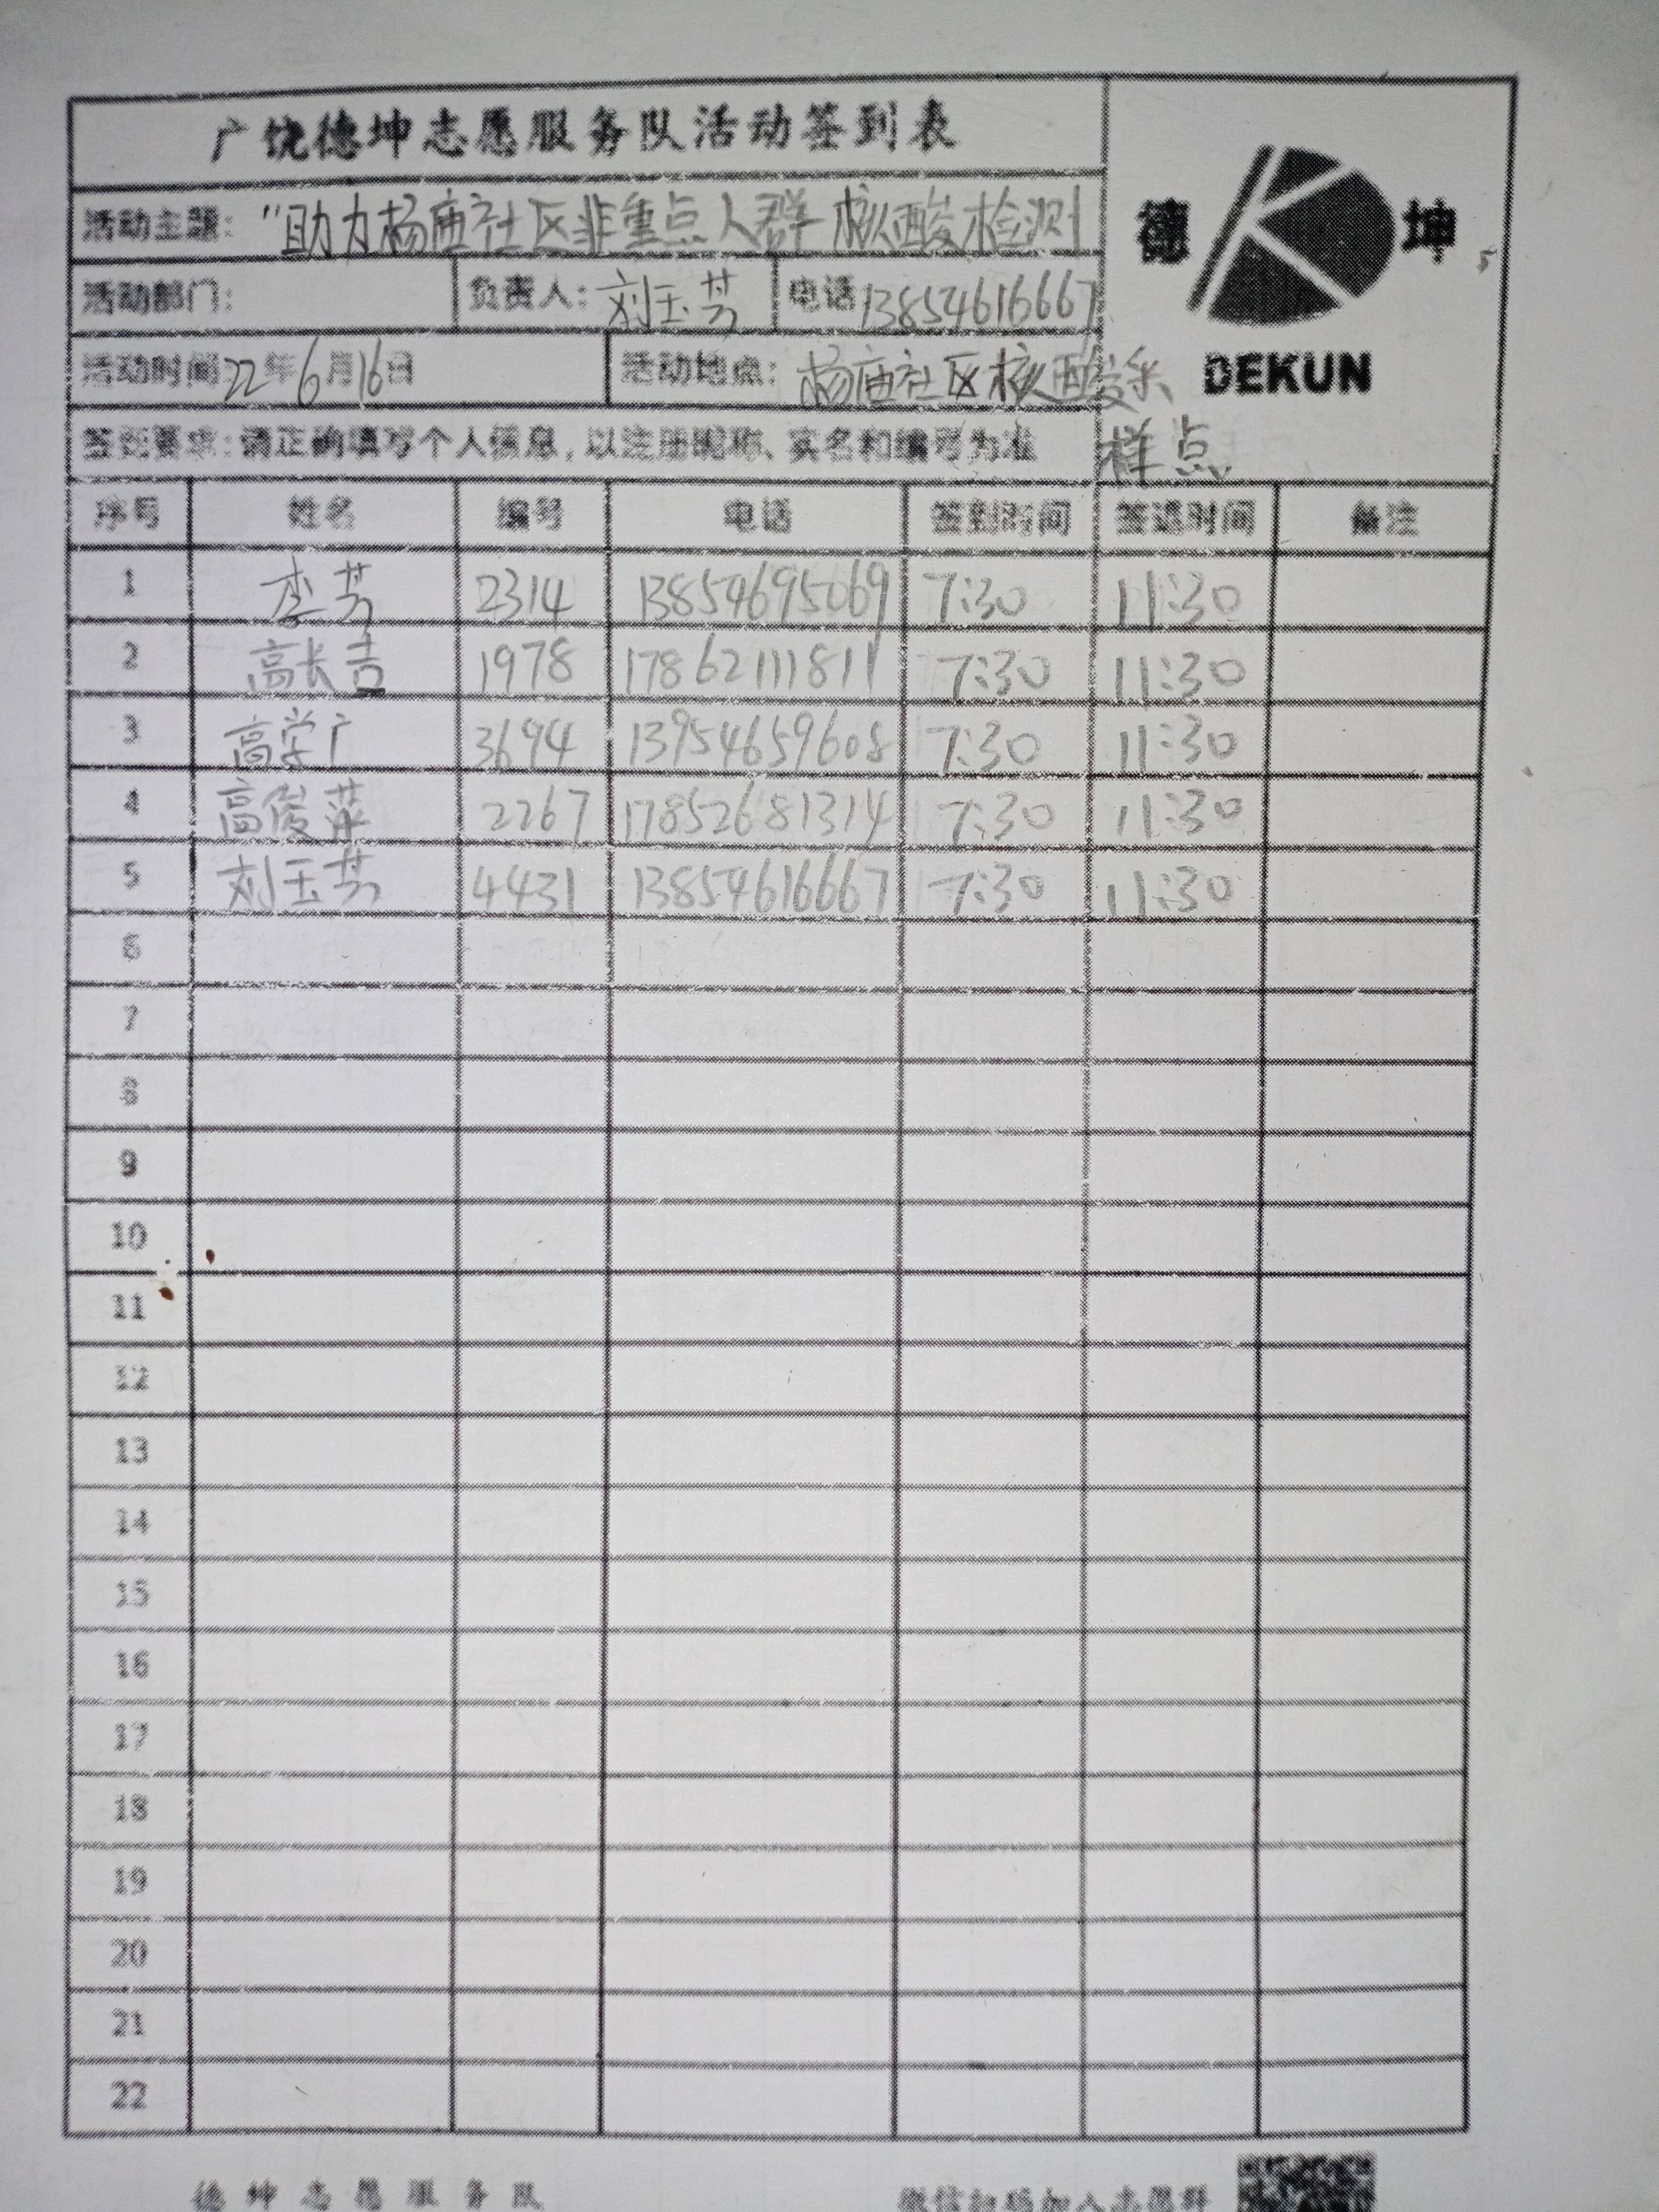 广饶德坤志愿服务队活动签到表
活动主题："助力杨庙社区非重点人群核酸检测
德 坤
活动部门： 负责人：刘玉芳 电话 13854616667
活动时间 22年6月16日 活动地点：杨庙社区核酸采样点
DEKUN
签到要求：请正确填写个人信息，以注册昵称、实名和编号为准
序号 姓名 编号 电话 签到时间 签退时间 备注
1 李芳 2314 13854695069 7:30 11:30
2 高长吉 1978 17862111811 7:30 11:30
3 高学广 3694 13954659608 7:30 11:30
4 高俊萍 2267 17852681314 7:30 11:30
5 刘玉芳 4431 13854616667 7:30 11:30
6
7
8
9
10
11
12
13
14
15
16
17
18
19
20
21
22
德坤志愿服务队 微信扫码加入志愿群